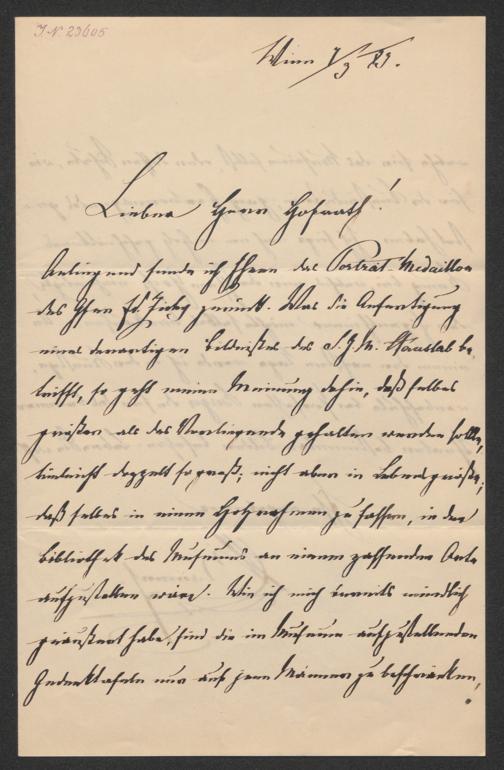 J. N. 23605
Wien 7/3 83.
Lieber Herr Hofrath!
Anliegend sende ich Ihnen das Porträt-Medaillon
des Hfrn Ed. zurück. Was die Anfertigung
eines derartigen Bildnißes des F.Z.M. Hauslab be-
trifft, so geht meine Meinung dahin, daß selbes
größer als das Vorliegende gehalten werden solle,
vielleicht doppelt so groß, nicht aber in Lebensgröße;
daß selbes in einen Holzrahmen zu fassen, in der
Bibliothek des Museums an einem passenden Orte
aufzustellen wäre. Wie ich mich bereits mündlich
geäußert habe, sind die im Museum aufzustellenden
Gedenktafeln nur auf jene Männer zu beschränken,